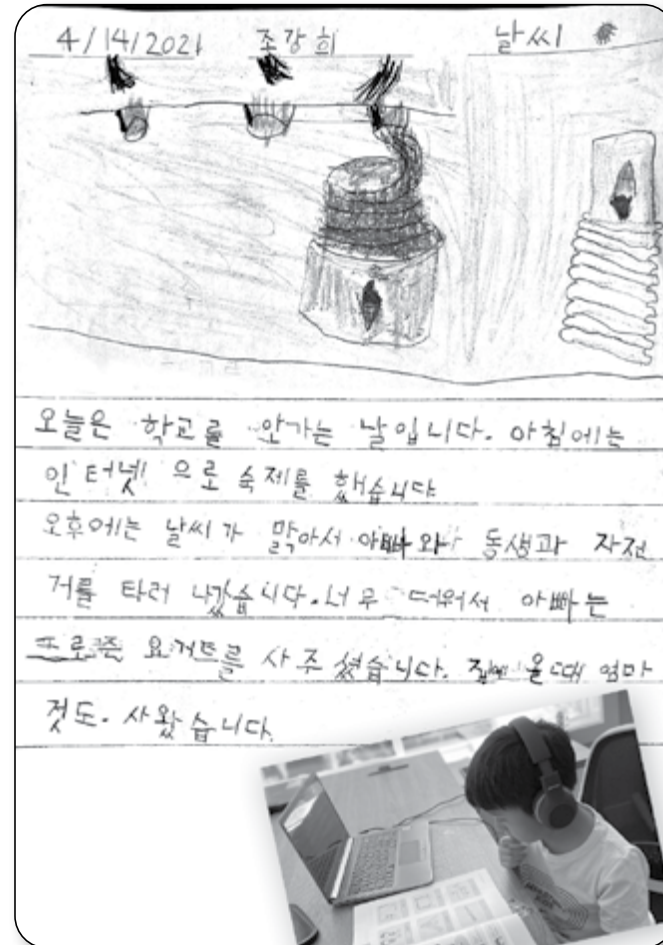 4/14/2021 조강희 날씨
오늘은 학교를 안가는 날입니다. 아침에는
인터넷 으로 숙제를 했습니다
오후에는 날씨가 맑아서 아빠와 동생과 자전
거를 타러 나갔습니다. 너무 더워서 아빠는
프로즌 요거트를 사 주셨습니다. 집에 올때 엄마
것도. 사왔습니다.